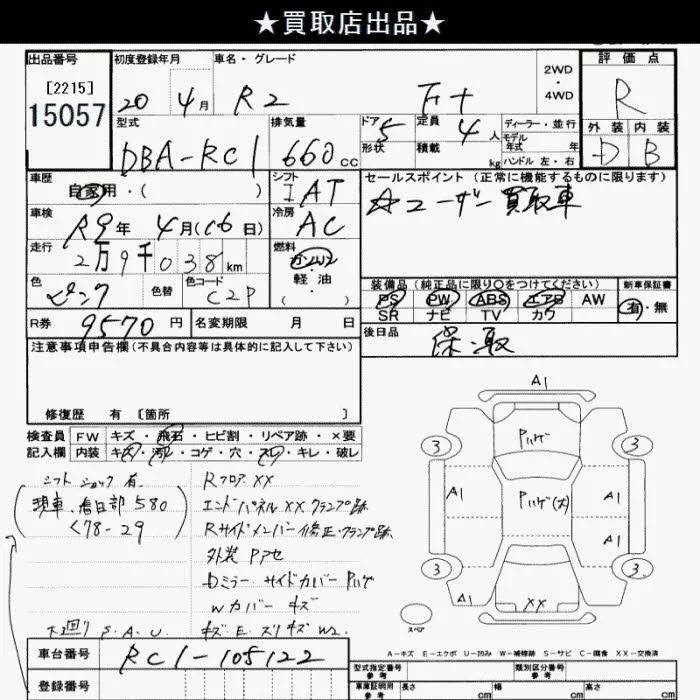 ★買取店出品★
出品番号
初度登録年月
車名・グレード
2WD
・
4WD
評価点
[2215]
15057
20 4月
R2
F+
R
型式
排気量
ドア
定員
ディーラー・並行
外装
内装
DBA-RC1
660 cc
5
4 人
モデル
年式 年
形状
積載
kg
ハンドル 左・右
D
B
車歴
自家用・( )
シフト
I AT
セールスポイント(正常に機能するものに限ります)
☆ユーザー買取車
車検
R9年 4月(16日)
冷房
AC
走行
2万9千038km
燃料
ガソリン
軽油
・( )
色
ピンク
色替
色コード
C2P
装備品(純正品に限り○をつけてください)
新車保証書
PS PW ABS エアB AW
SR ナビ TV カワ
有・無
R券
9570円
名変期限 月 日
後日品
保・取
注意事項申告欄(不具合内容等は具体的に記入して下さい)
修復歴 有 [箇所 ]
検査員
記入欄
FW キズ・飛石・ヒビ割・リペア跡・×要
内装 キズ・汚レ・コゲ・穴・スレ・キレ・破レ
シフトショック有
(現車、春日部580
く78-29)
Rフロア XX
エンドパネルXXクランプ跡
Rサイドメンバー修正・クランプ跡
外装Pアセ
Dミラー サイドカバーPハゲ
Wカバーキズ
下回りS.A.U.
キズE.スリキズW2
A1
Pハゲ
3
3
A1
Pハゲ(大)
A1
A1
3
3
A1
XX
スペア
A-キズ E-エクボ U-凹み W-補修跡 S-サビ C-腐食 XX-交換済
車台番号
RC1-105122
登録番号
型式指定番号
参考
類別区分番号
参考
車庫証明用
参考
長さ cm
幅 cm
高さ cm